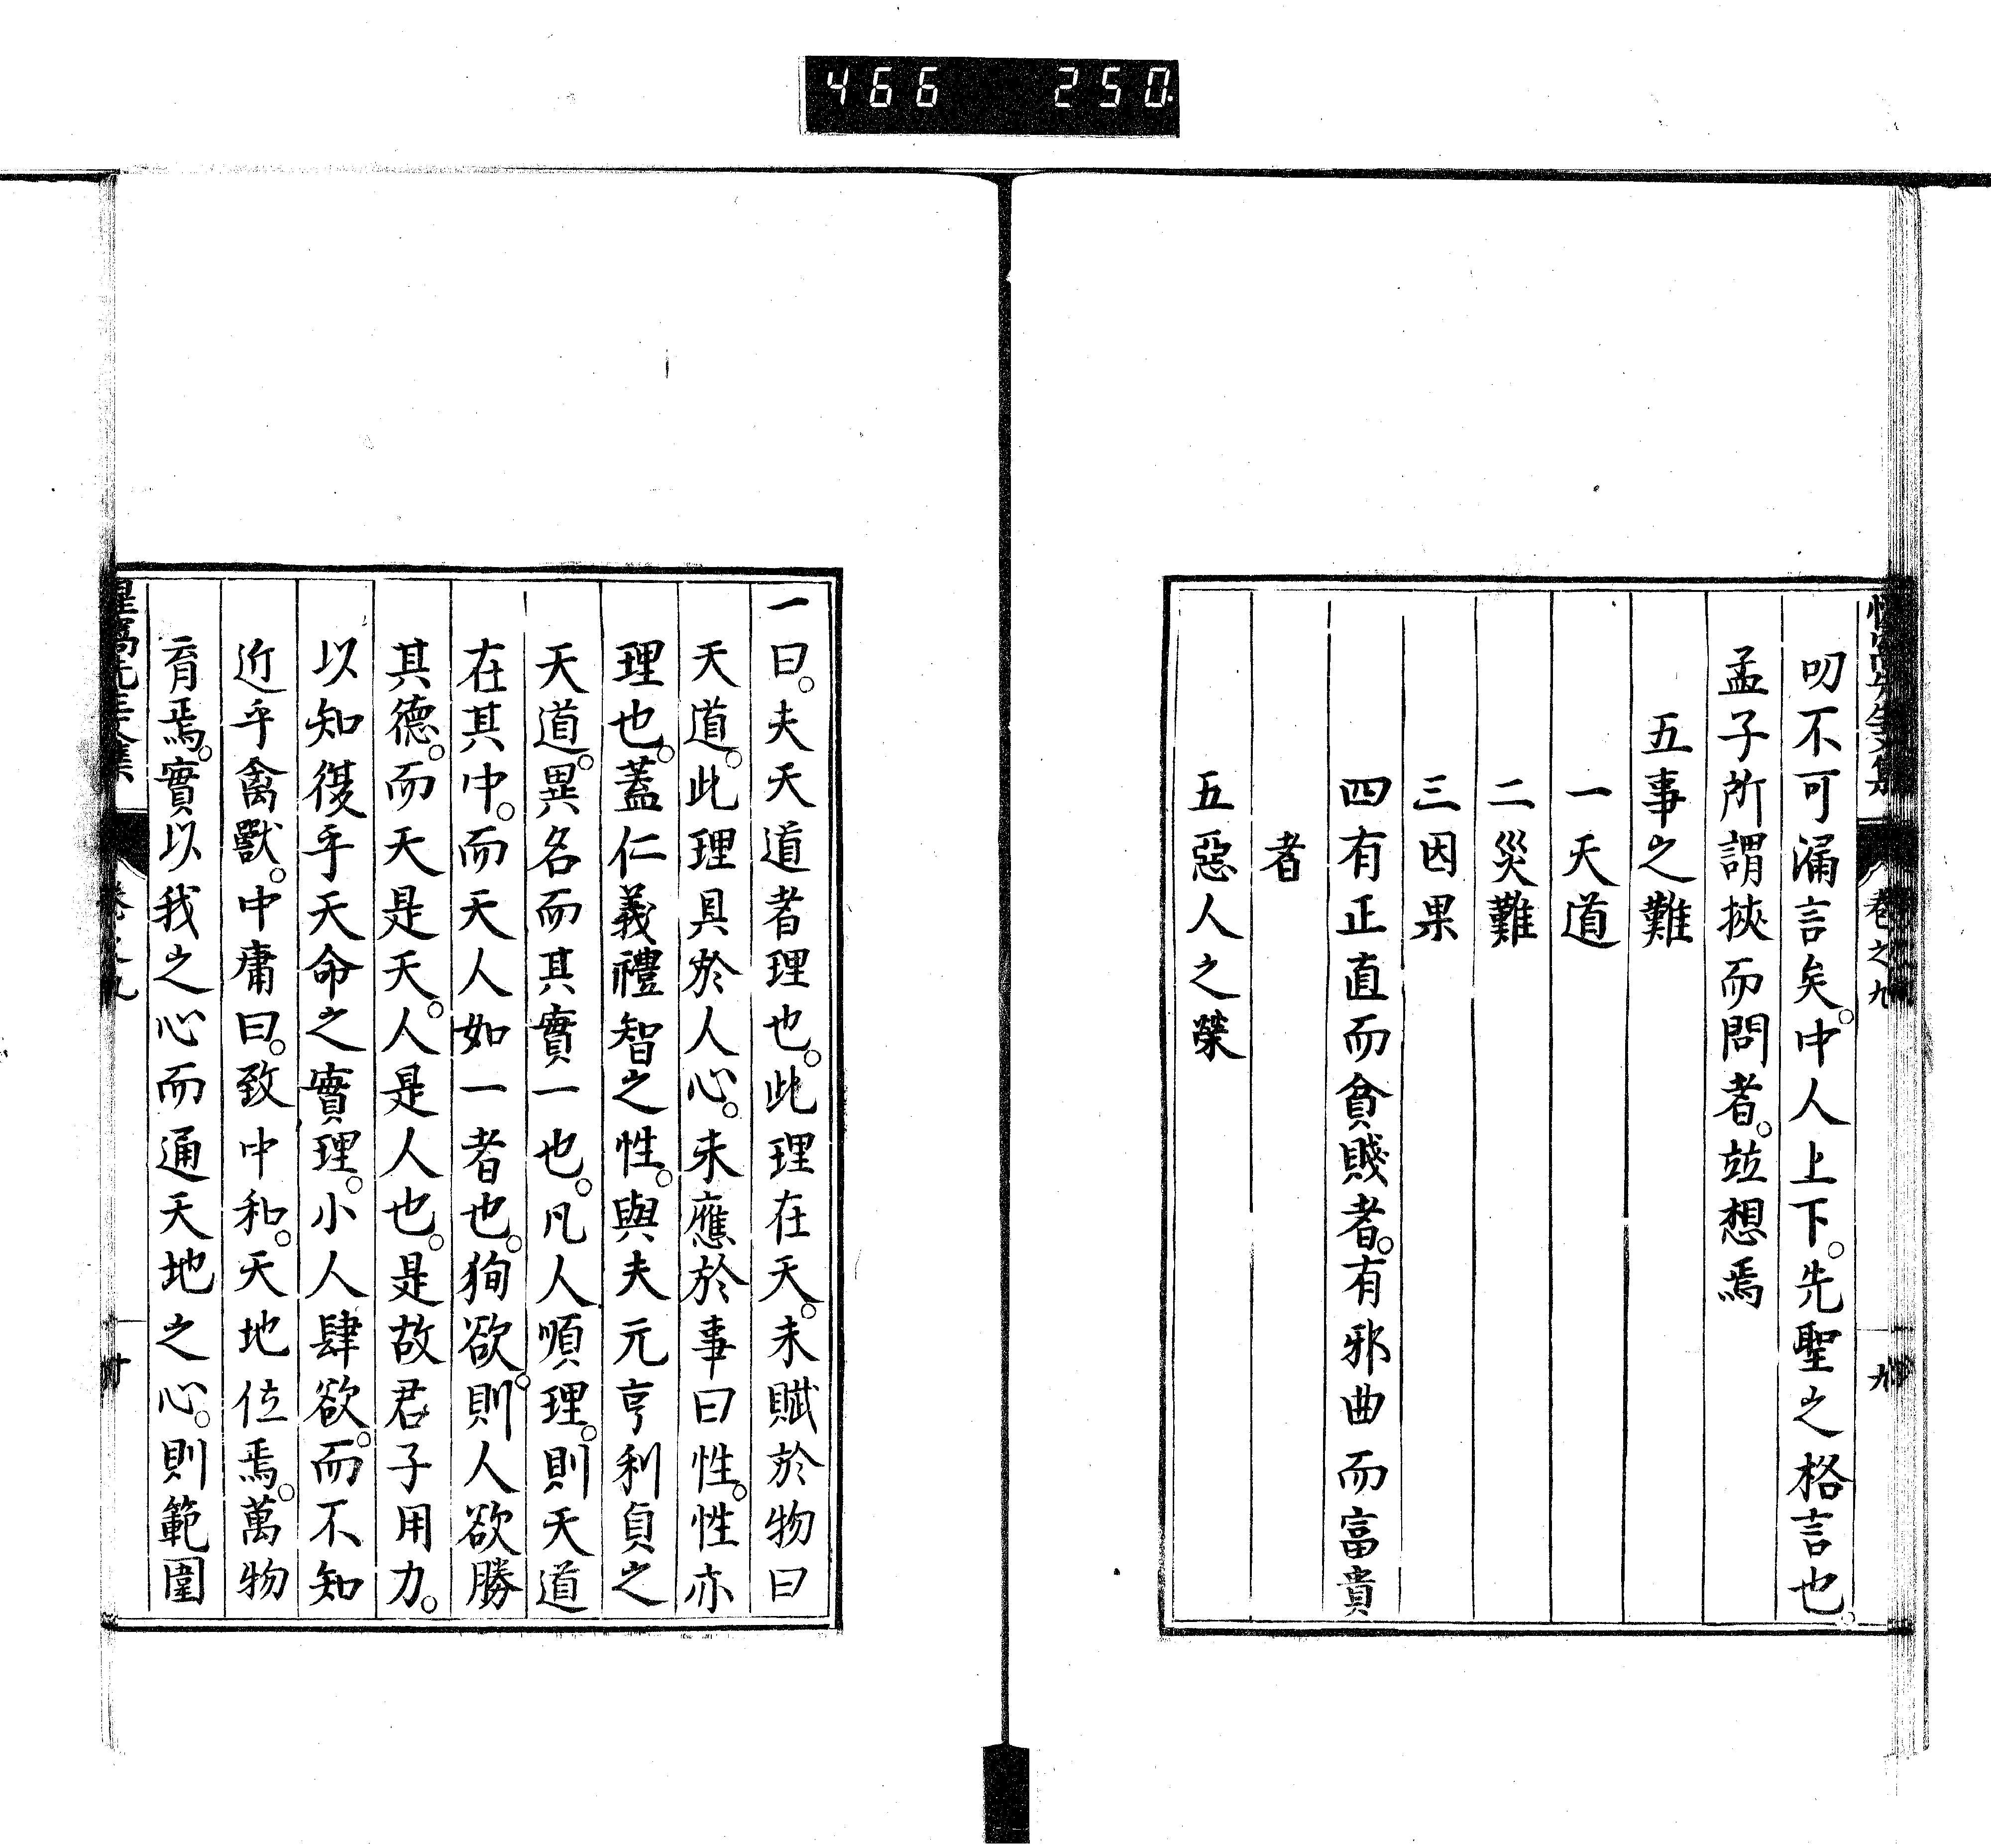 466 250.
惺窩先生文集 卷之九 九
叨不可漏言矣。中人上下。先聖之格言也。
孟子所謂挾而問者。竝想焉
五事之難
一天道
二災難
三因果
四有正直而貧賤者。有邪曲而富貴
者
五惡人之榮
一曰。夫天道者理也。此理在天。未賦於物曰
天道。此理具於人心。未應於事曰性。性亦
理也。蓋仁義禮智之性。與夫元亨利貞之
天道。異名而其實一也。凡人順理。則天道
在其中。而天人如一者也。狥欲。則人欲勝
其德。而天是天。人是人也。是故君子用力。
以知復乎天命之實理。小人肆欲。而不知
近乎禽獸。中庸曰。致中和。天地位焉。萬物
育焉。實以我之心而通天地之心。則範圍
惺窩先生文集 卷之九 十